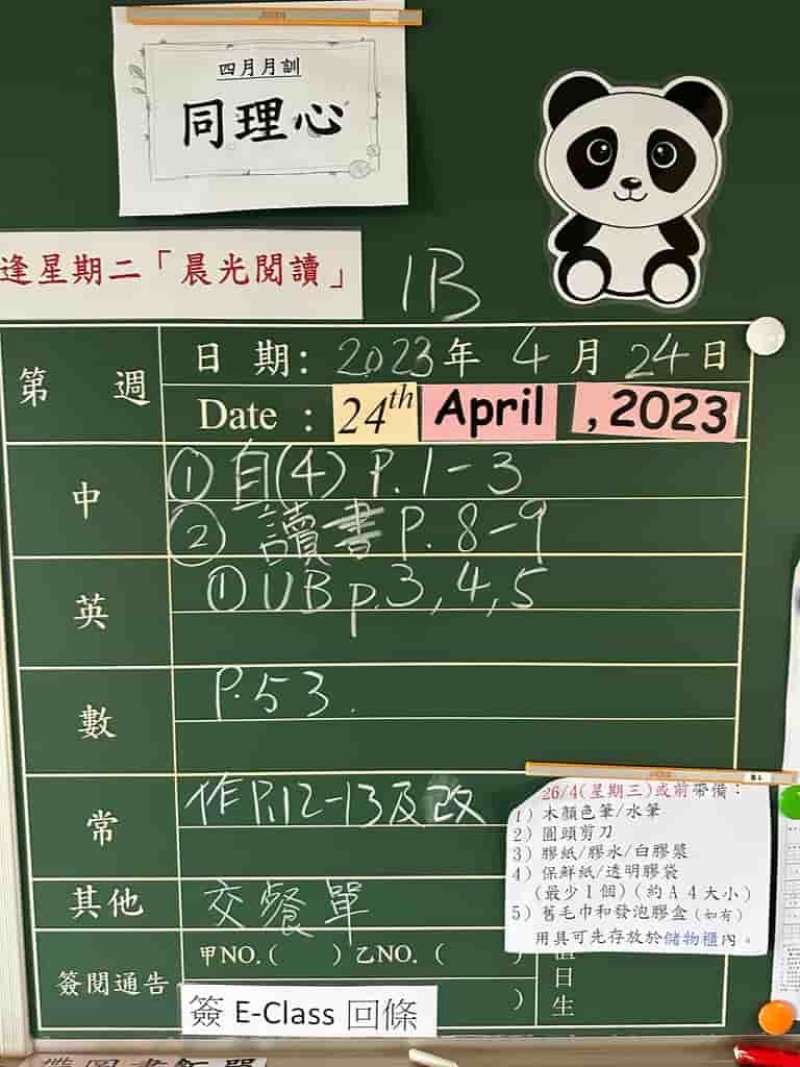 四月月訓
同理心
逢星期二「晨光閱讀」
1B
第 週
日 期: 2023年 4月 24日
Date : 24th April , 2023
中
① 自(4) P.1-3
② 讀書 P. 8-9
英
① UB p.3,4,5
數
P.53.
常
作P.12-13及改
其他
交餐單
簽閱通告
甲NO.( ) 乙NO. ( )
)
簽 E-Class 回條
日生
26/4(星期三)或前帶備：
1) 木顏色筆/水筆
2) 圓頭剪刀
3) 膠紙/膠水/白膠漿
4) 保鮮紙/透明膠袋
(最少1個)(約A4大小)
5) 舊毛巾和發泡膠盒(如有)
用具可先存放於儲物櫃內。